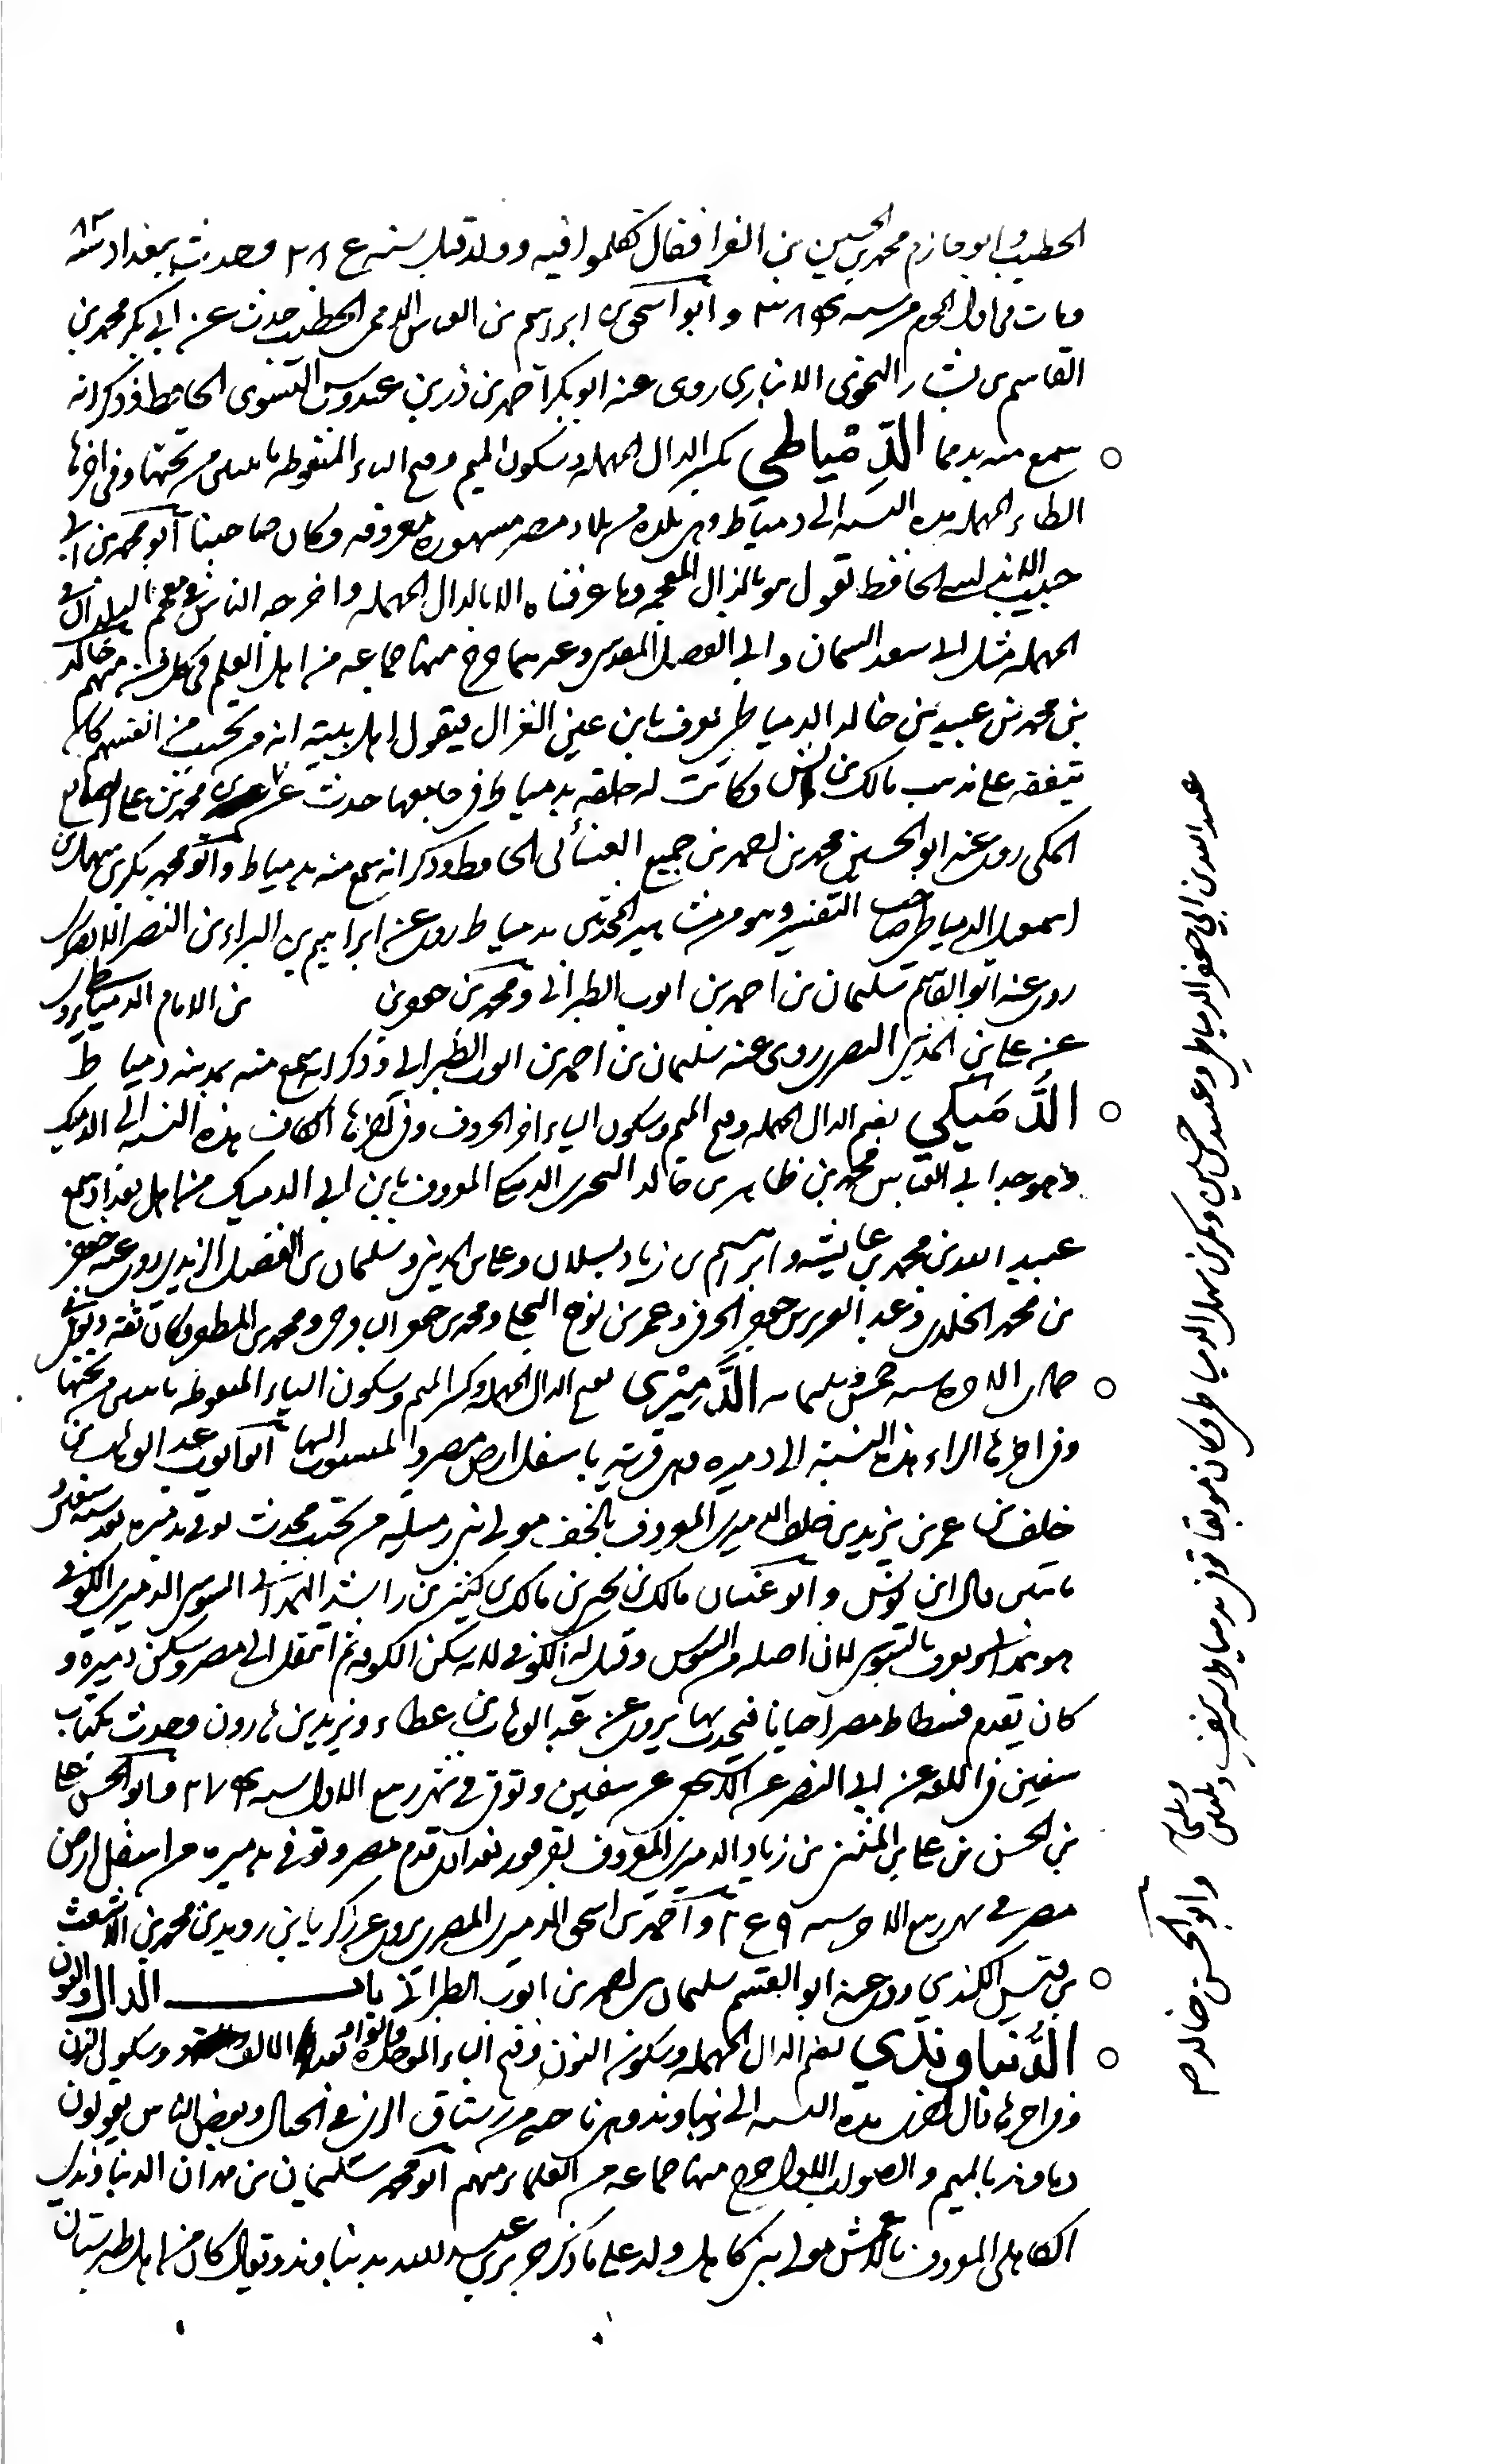 الخطيب وابو حازم محمد بن الحسين بن الفرا فقال تكلموا فيه وولد قبل سنة وحدث ببغداد سنة
ومات في اول المحرم من سنة وابو اسحق ابراهيم بن العباس الخطيب حدث عن ابي بكر محمد بن
القاسم بن بشار النحوي الانباري روى عنه ابو بكر احمد بن ذر بن عبدوس الحافظ وذكر انه
سمع منه بدمما الدِّمْياطي بكسر الدال المهملة وسكون الميم وفتح الياء المنقوطة باثنتين من تحتها وفي اخرها
الطاء المهملة هذه النسبة الى دمياط وهي بلدة من بلاد مصر مشهورة معروفة وكان صاحبنا ابو محمد بن ابي
حبيب الاندلسي الحافظ يقول هو بالذال المعجمة وما عرفناه الا بالدال المهملة واخرجه الناس في معجم البلدان في
المهملة مثل ابي سعد السمان وابي الفضل المقدسي وغيرهما خرج منها جماعة من اهل العلم في كل فن منهم خالد
بن محمد بن عبيد بن خالد الدمياطي يعرف بابن عين الغزال يقول اهل بيته انه من تجيب من انفسهم كان
يتفقه على مذهب مالك بن انس وكانت له حلقة بدمياط في جامعها حدث عن محمد بن علي الصايغ
المكي روى عنه ابو الحسين محمد بن احمد بن جميع الغسائي الحافظ وذكر انه سمع منه بدمياط وابو محمد بكر بن سهل بن
اسمعيل الدمياطي صاحب التفسير وهو من مشاهير المحدثين بدمياط روى عن ابراهيم بن البراء بن النضر الانصاري
روى عنه ابو القاسم سليمان بن احمد بن ايوب الطبراني ومحمد بن جعفر بن بن الامام الدمياطي روى
عن علي بن المديني البصري روى عنه سليمان بن احمد بن ايوب الطبراني وذكر انه سمع منه بمدينة دمياط
الدُّمَيْكي بضم الدال المهملة وفتح الميم وسكون الياء اخر الحروف وفي اخرها الكاف هذه النسبة الى الدميك
وهو جد ابي العباس محمد بن طاهر بن خالد الدميكي المعروف بابن ابي الدميك من اهل بغداد سمع
عبيد الله بن محمد بن عايشة وابراهيم بن زياد سبلان وعلي بن المديني وسليمان بن الفضل الزيدي روى عنه جعفر
بن محمد الخلدي وعبد العزيز بن جعفر الخرقي وعمر بن نوح البجلي ومحمد بن المظفر وكان ثقة وتوفي في
جمادى الاولى سنة خمس وثلثماية الدَّمِيْري بفتح الدال المهملة وكسر الميم وسكون الياء المنقوطة باثنتين من تحتها
وفي اخرها الراء هذه النسبة الى دميرة وهي قرية باسفل ارض مصر والمنسوب اليها ابو ايوب عبد الوهاب بن
خلف بن عمر بن يزيد بن خلف الدميري المعروف بالخف مولى بني رميلة من تجيب محدث توفي بدميرة بعد سنة سبعين و
ماتين قال ابن يونس وابو غسان مالك بن يحيى بن مالك بن كثير بن راشد الهمداني السوسي الدميري الكوفي
هو همداني يعرف بالسوسي لان اصله من السوس وقيل له الكوفي لانه سكن الكوفة ثم انتقل الى مصر وسكن دميرة و
كان يقدم فسطاط مصر احيانا فيحدث بها يروي عن عبد الوهاب بن عطاء ويزيد بن هارون وحدث بكتاب
سفين في اللغة عن ابي النضر عن الاشجعي عن سفين وتوفي في شهر ربيع الاول سنة وابو الحسن علي
بن الحسن بن علي بن المثنى بن زياد الدميري المعروف بقرقور بغدادي قدم مصر وتوفي بدميرة من اسفل ارض
مصر في شهر ربيع الاخر سنة واحمد بن اسحق الدميري المصري يروي عن زكريا بن دويد بن محمد بن الاشعث
بن قيس الكندي روى عنه ابو القسم سليمان بن احمد بن ايوب الطبراني باب الدال والنون
الدُّنباوندي بضم الدال المهملة وسكون النون وفتح الباء الموحدة والواو بعد الالف وسكون النون
وفي اخرها دال اخرى هذه النسبة الى دنباوند وهي ناحية من رستاق الري في الجبال وبعض الناس يقولون
دماوند بالميم والصواب الاول خرج منها جماعة من العلماء منهم ابو محمد سليمان بن مهران الدنباوندي
الكاهلي المعروف بالاعمش مولى بني كاهل ولد على ما ذكر جرير بن عبد الله بدنباوند ويقال كان من اهل طبرستان
عبد الله بن ابي جعفر الدمياطي وبكر بن سهل الدمياطي وكان موثقا توفي بدمياط
وابو الحسن خالد صح